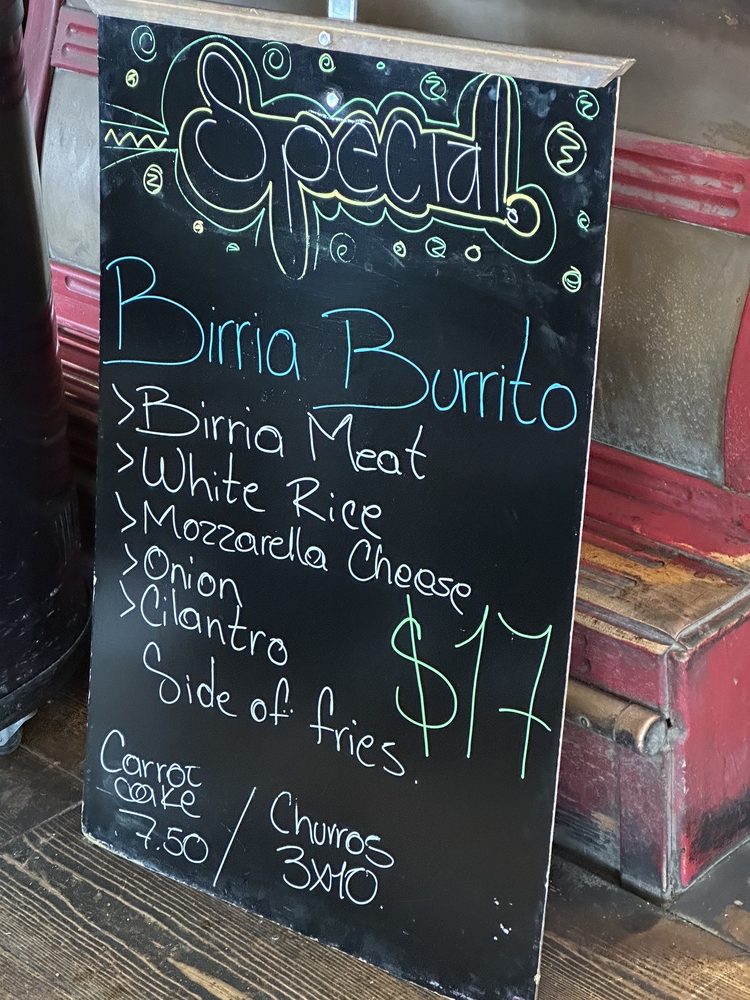 Special.
Birria Burrito
>Birria Meat
>White Rice
>Mozzarella Cheese
>Onion
>Cilantro
$17
Side of fries.
Carrot
cake
7.50
/
Churros
3x10.